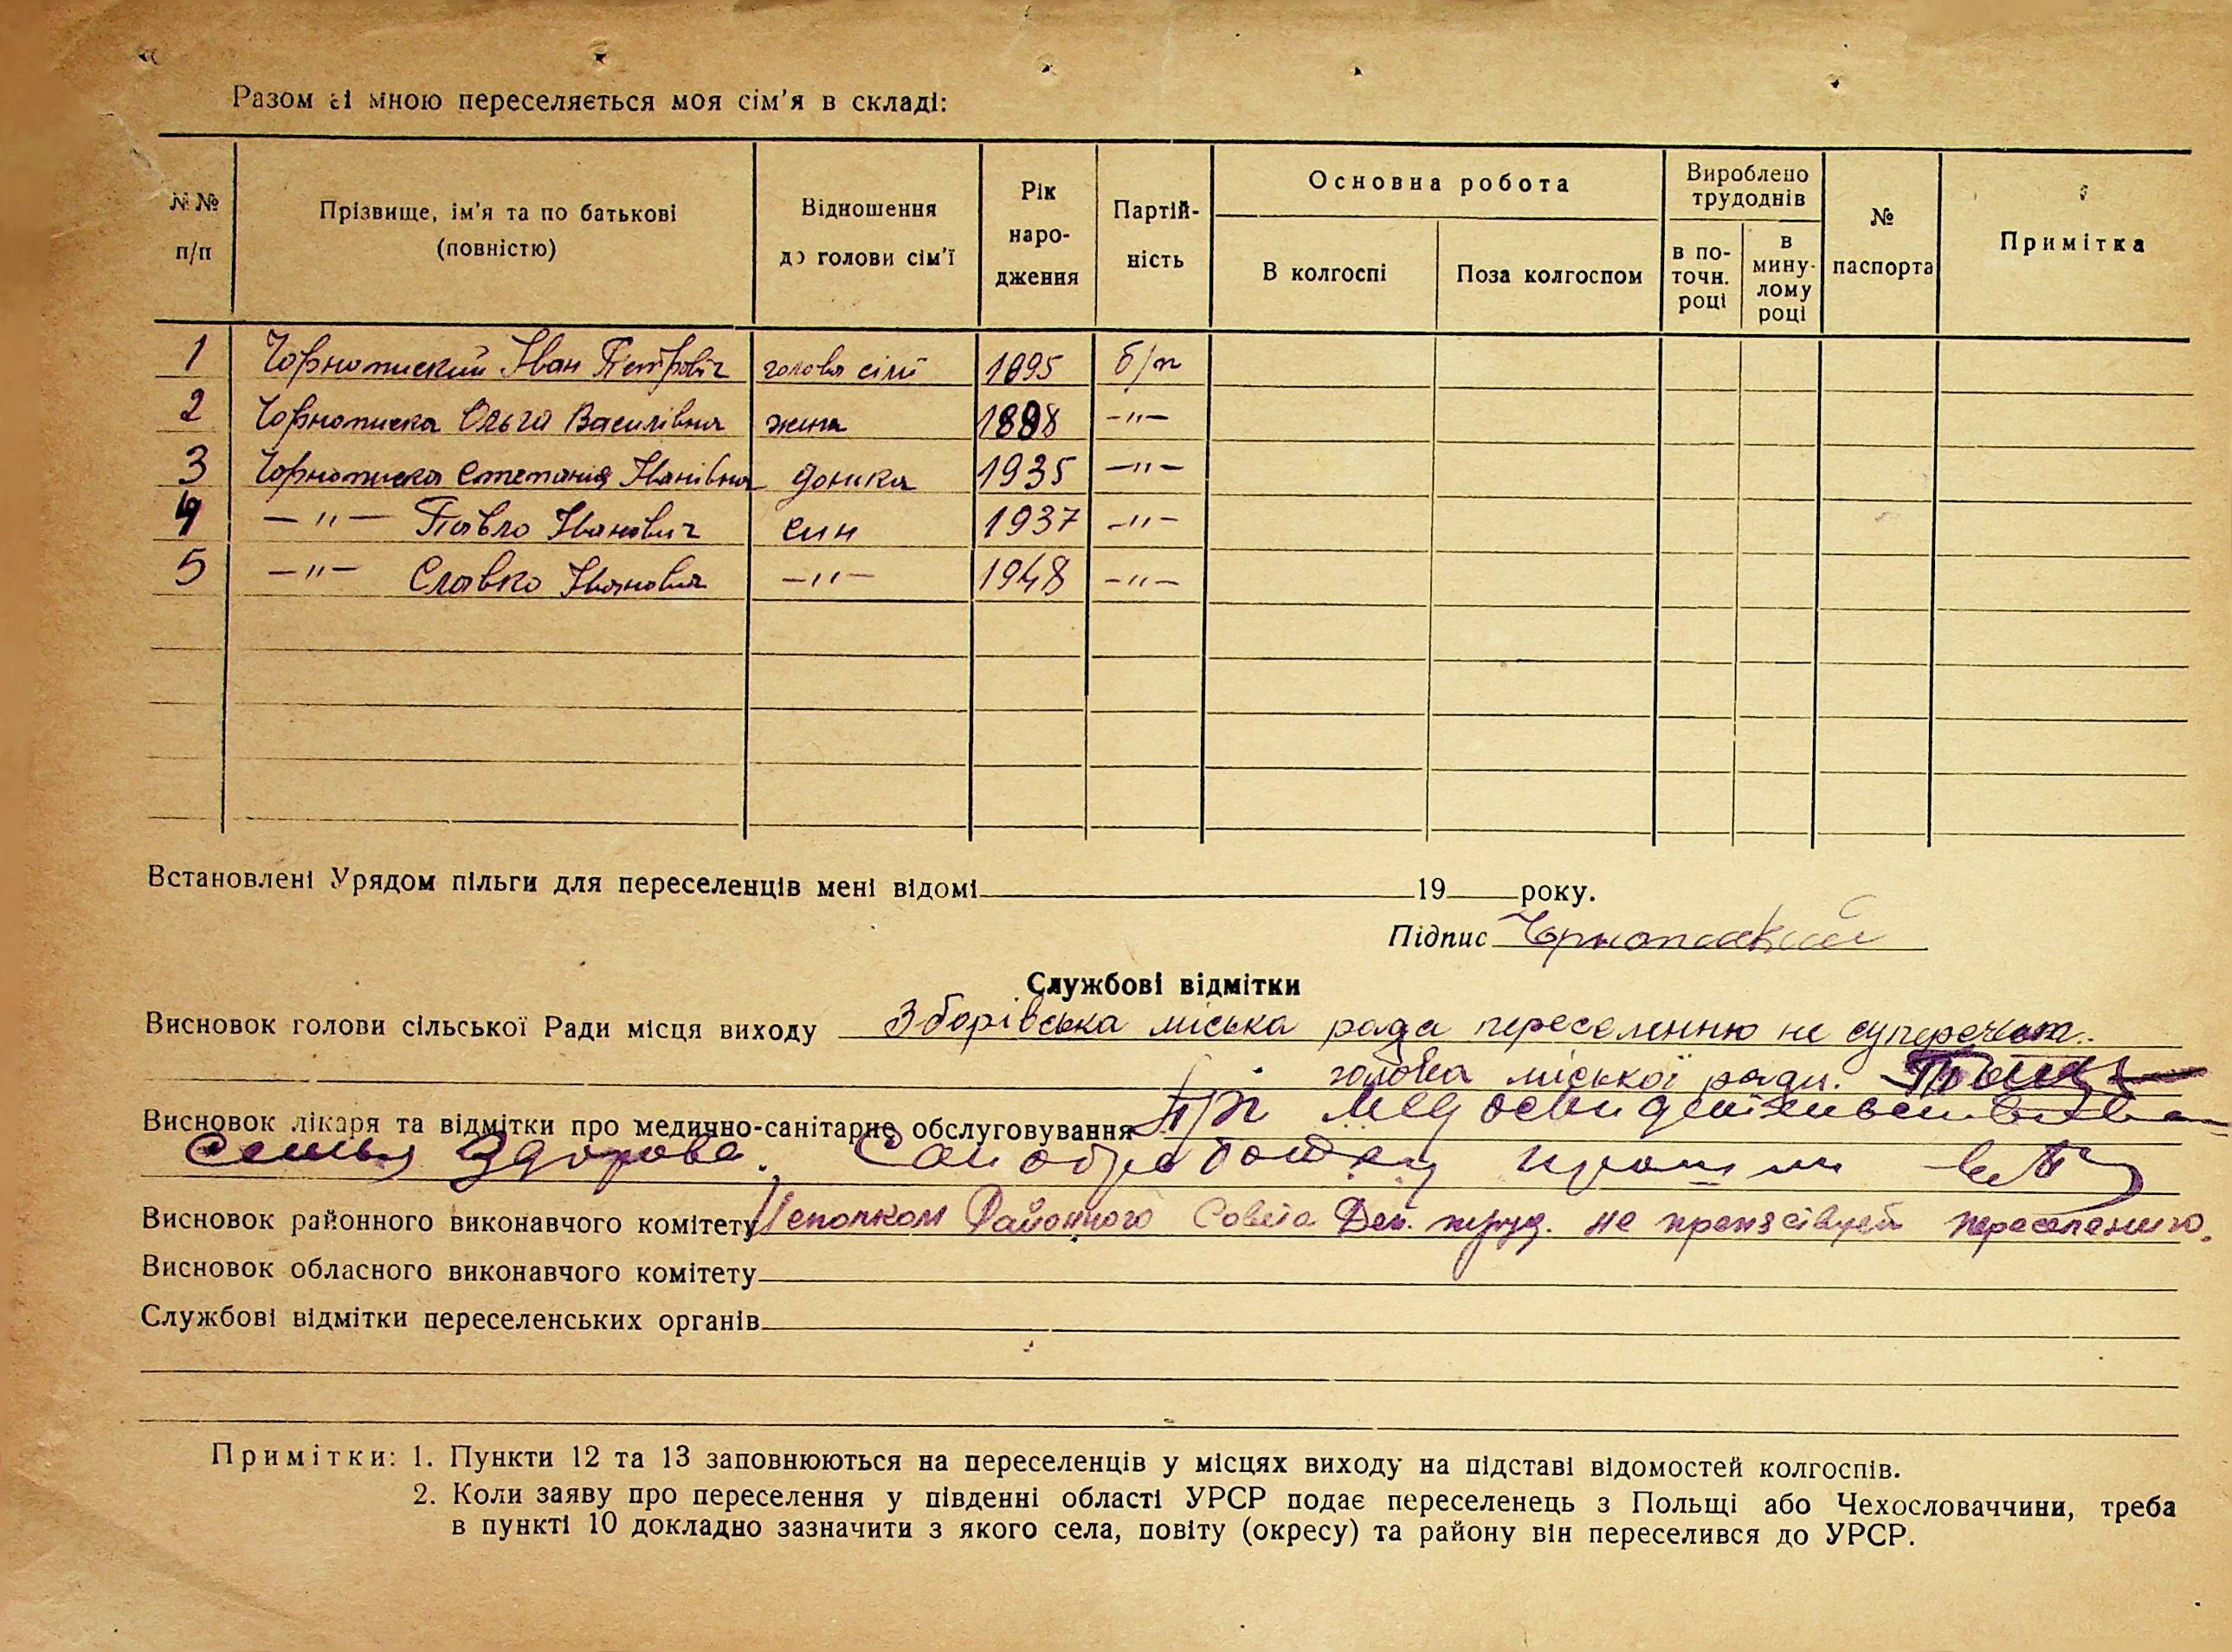 Разом зі мною переселяється моя сім'я в складі:
№ № п/п
Прізвище, ім'я та по батькові (повністю)
Відношення до голови сім'ї
Рік народження
Партійність
Основна робота
В колгоспі
Поза колгоспом
Вироблено трудоднів
в поточн. році
в минулому році
№ паспорта
Примітка
1 Чорнописький Іван Петрович голова сімї 1895 б/п
2 Чорнописка Ольга Василівна жена 1898 –"–
3 Чорнописка Степанія Іванівна донька 1935 –"–
4 –"– Павло Іванович син 1937 –"–
5 –"– Славко Іванович –"– 1948 –"–
Встановлені Урядом пільги для переселенців мені відомі 19 року.
Підпис
Службові відмітки
Висновок голови сільської Ради місця виходу Зборівська міська рада переселенню не суперечит.
голова міської ради.
Висновок лікаря та відмітки про медично-санітарне обслуговування При
Семья здорова. Санобработку
Висновок районного виконавчого комітету Исполком Районного Совета Деп. труд. не переселению.
Висновок обласного виконавчого комітету
Службові відмітки переселенських органів
Примітки: 1. Пункти 12 та 13 заповнюються на переселенців у місцях виходу на підставі відомостей колгоспів.
2. Коли заяву про переселення у південні області УРСР подає переселенець з Польщі або Чехословаччини, треба
в пункті 10 докладно зазначити з якого села, повіту (округу) та району він переселився до УРСР.